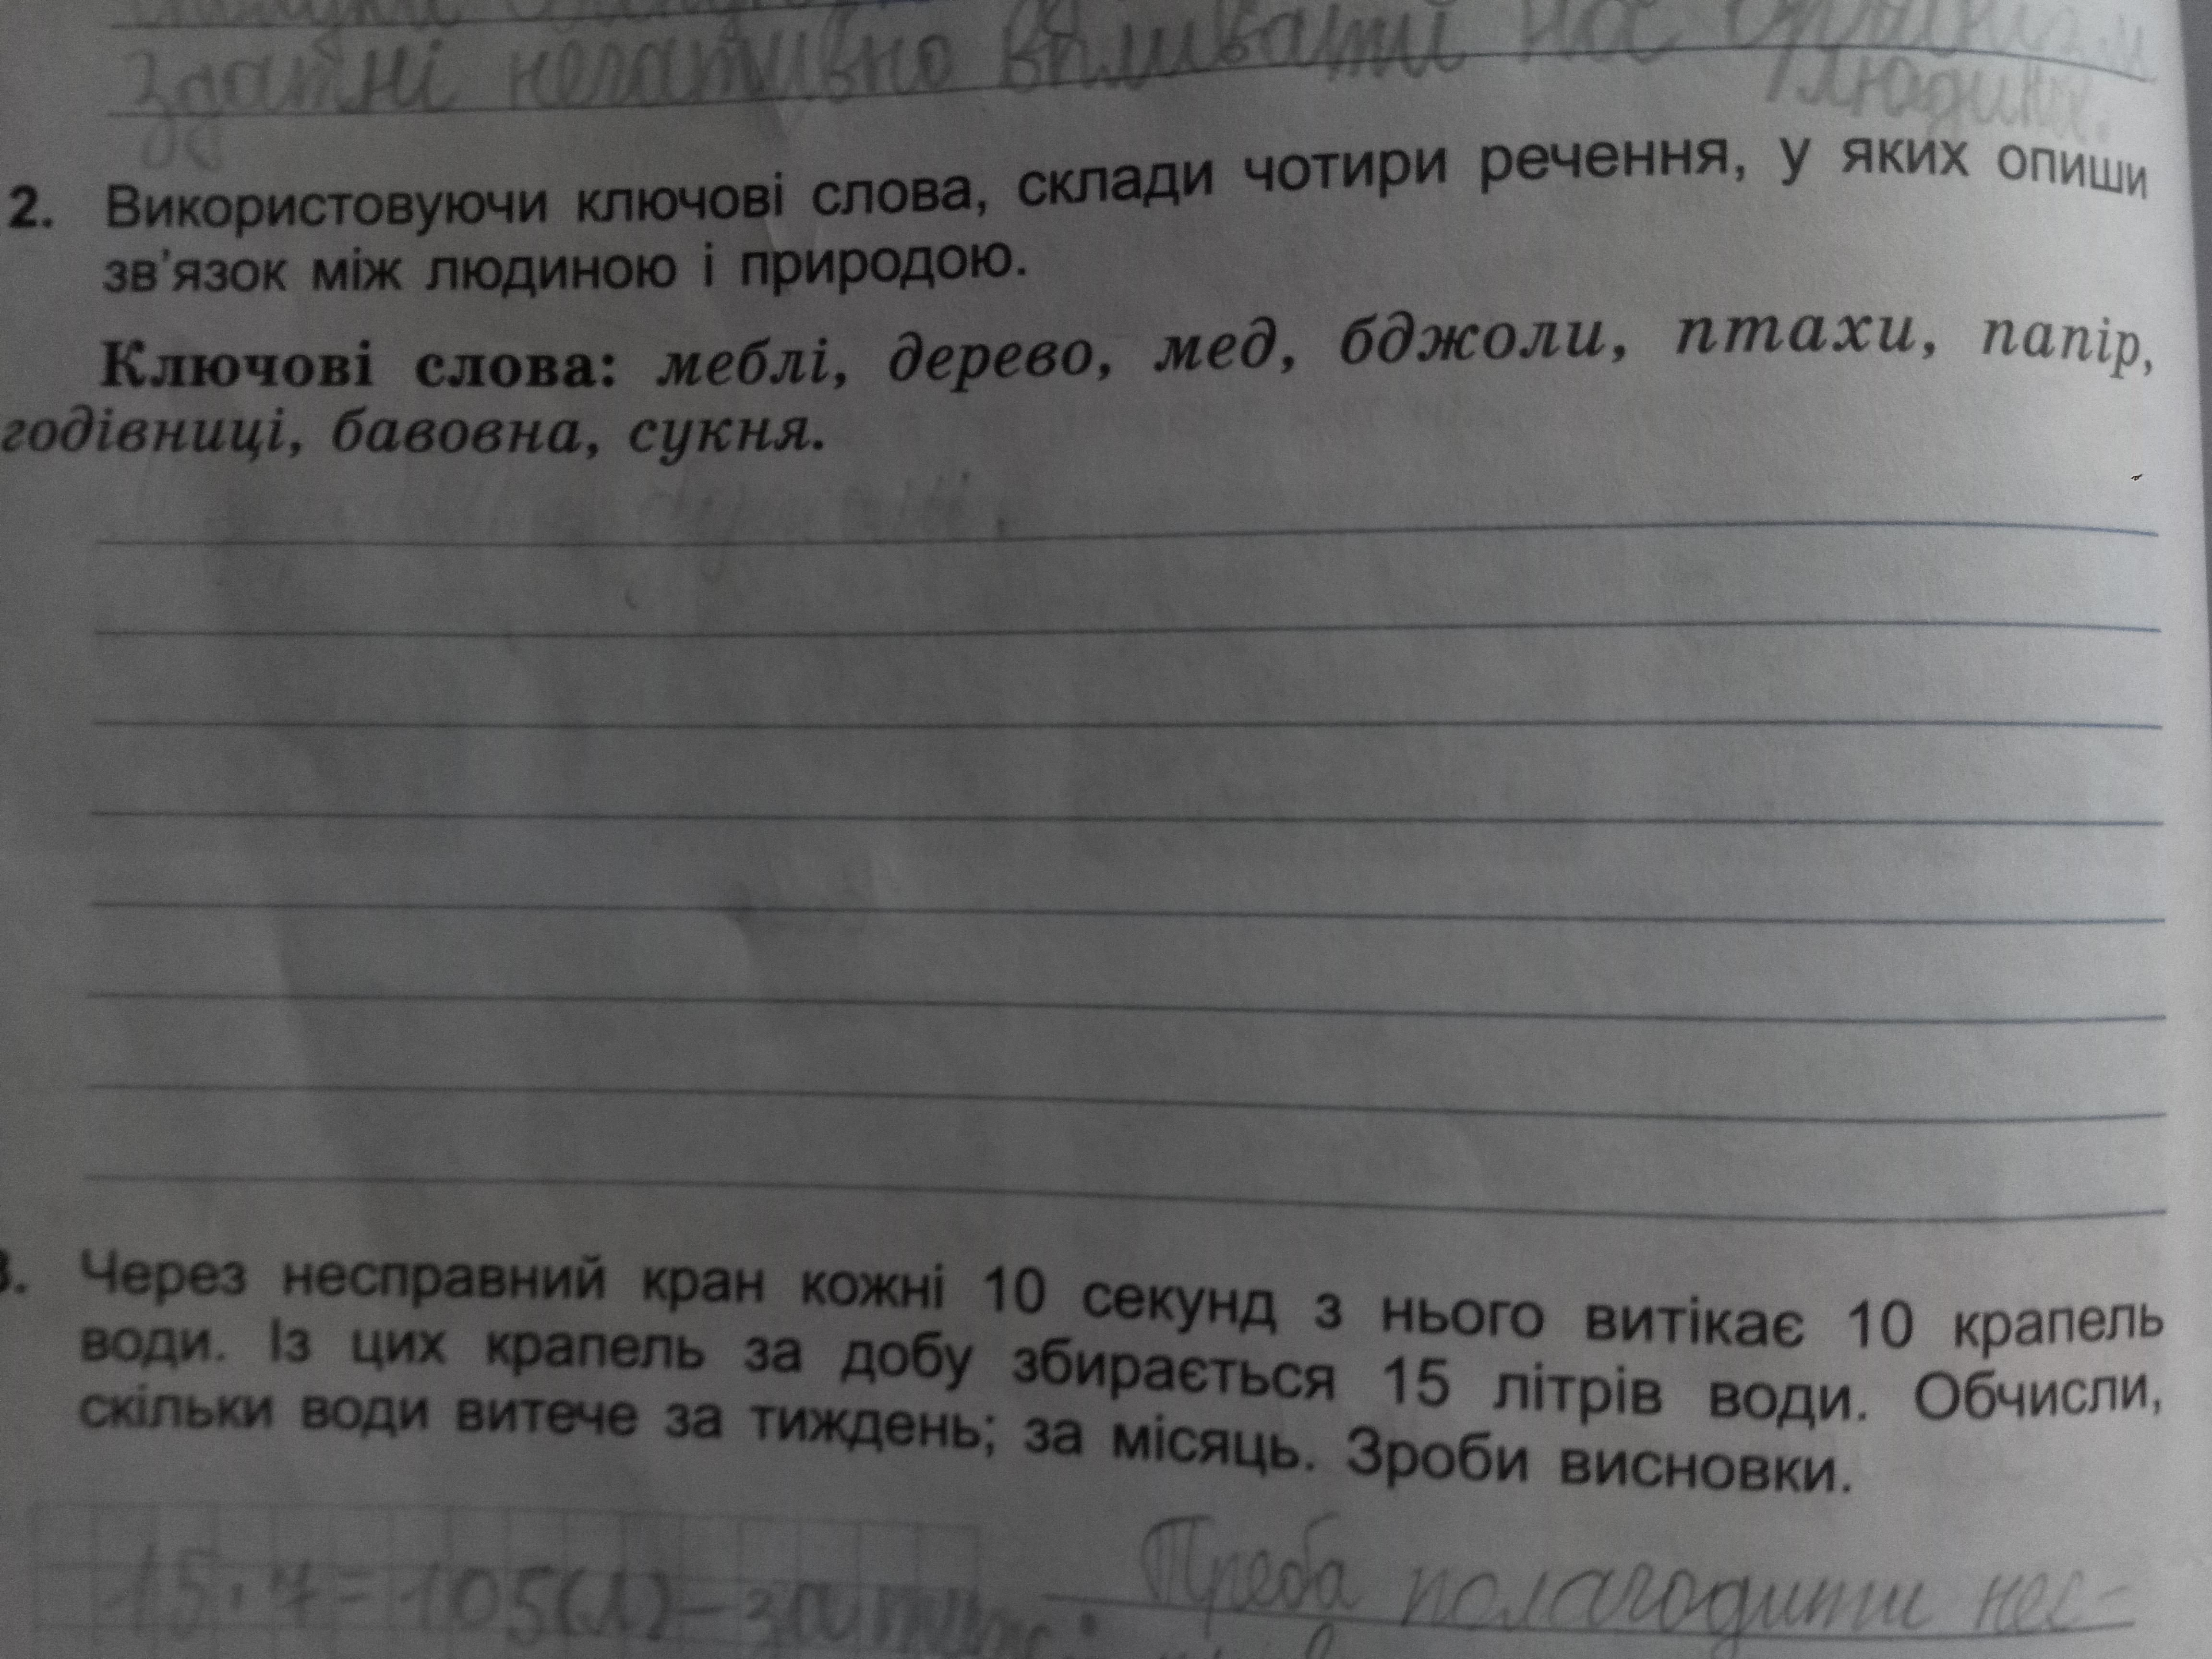 здатні негативно впливати на організм
людини.
2. Використовуючи ключові слова, склади чотири речення, у яких опиши
зв'язок між людиною і природою.
Ключові слова: меблі, дерево, мед, бджоли, птахи, папір,
годівниці, бавовна, сукня.
3. Через несправний кран кожні 10 секунд з нього витікає 10 крапель
води. Із цих крапель за добу збирається 15 літрів води. Обчисли,
скільки води витече за тиждень; за місяць. Зроби висновки.
15·7=105(л)–за Треба полагодити нес-